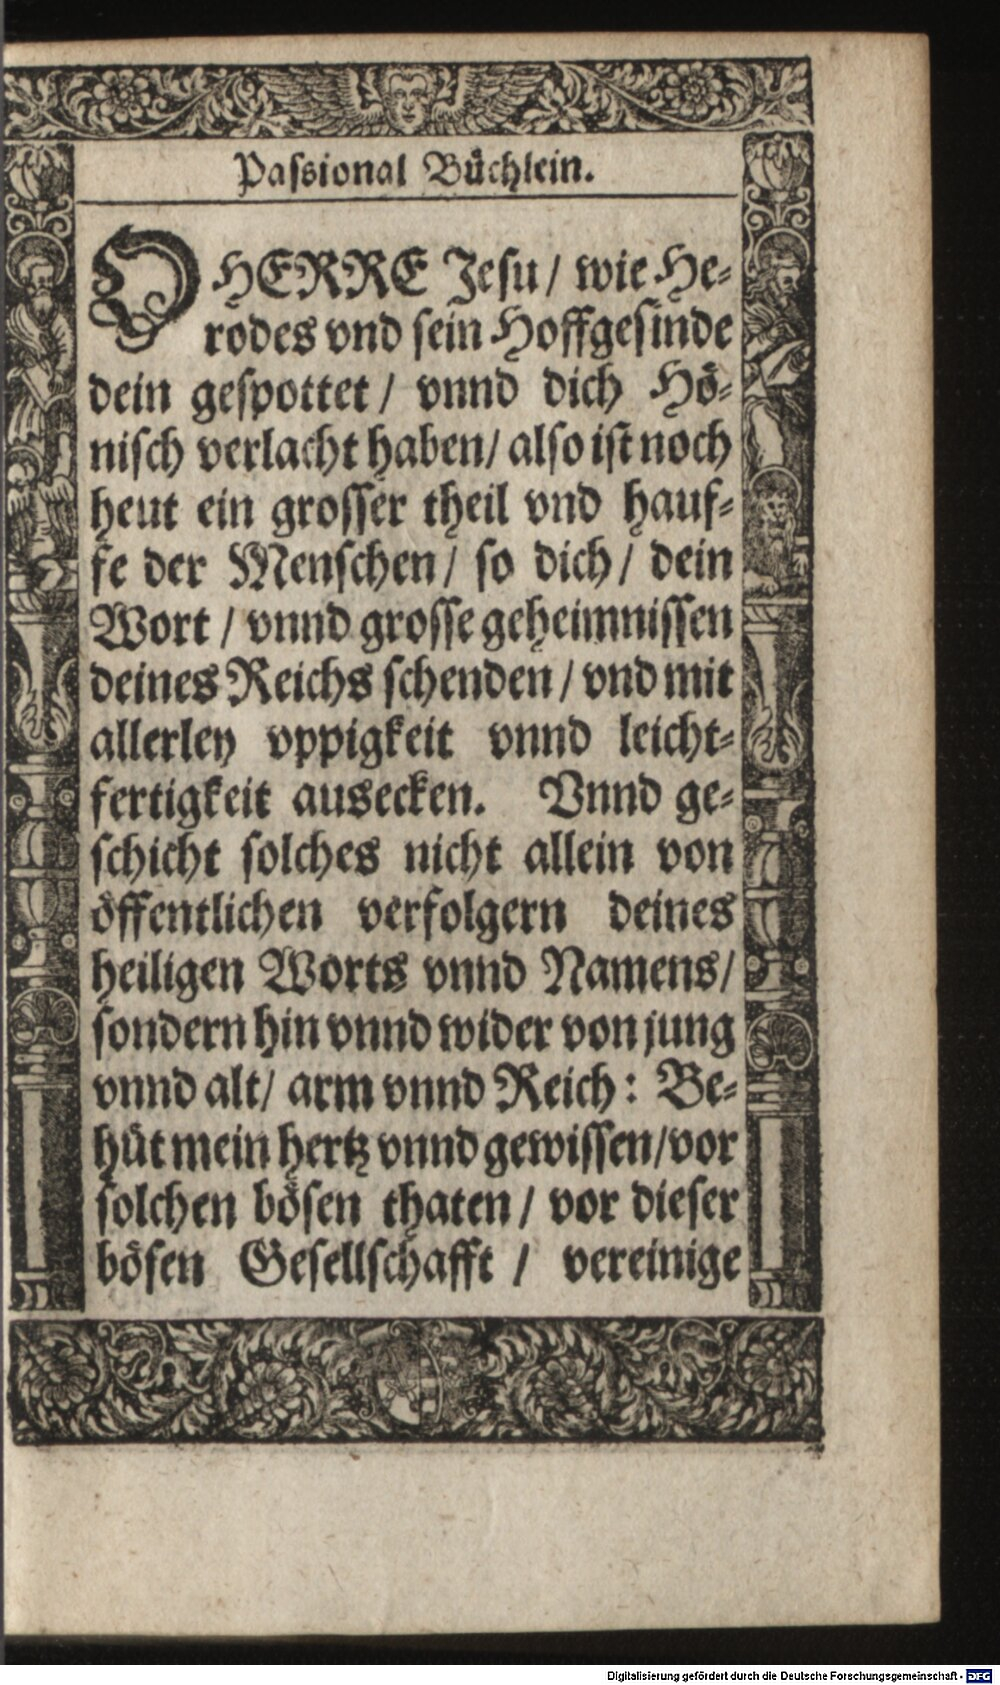 Passional Büchlein.
O HERRE Jesu / wie He-
rodes vnd sein Hoffgesinde
dein gespottet / vnnd dich Hö-
nisch verlacht haben / also ist noch
heut ein grosser theil vnd hauf-
fe der Menschen / so dich / dein
Wort / vnnd grosse geheimnissen
deines Reichs schenden / vnd mit
allerley vppigkeit vnnd leicht-
fertigkeit ausecken. Vnnd ge-
schicht solches nicht allein von
öffentlichen verfolgern deines
heiligen Worts vnnd Namens /
sondern hin vnnd wider von jung
vnnd alt / arm vnnd Reich : Be-
hüt mein hertz vnnd gewissen / vor
solchen bösen thaten / vor dieser
bösen Gesellschafft / vereinige
Digitalisierung gefördert durch die Deutsche Forschungsgemeinschaft - DFG